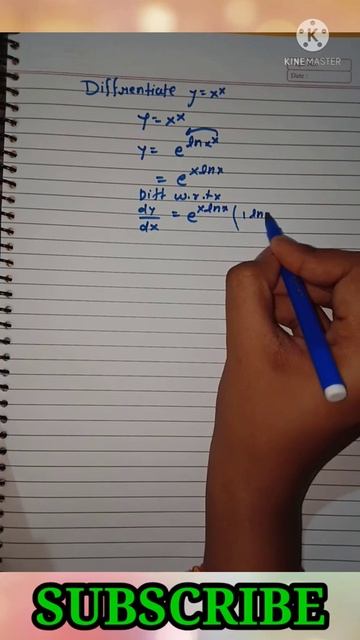 KINEMASTER
Date :
Diffrentiate y = xˣ
y = xˣ
y = e^{ln xˣ}
= e^{x ln x}
Diff w.r.t x
dy/dx = e^{x ln x} ( 1 ln
SUBSCRIBE